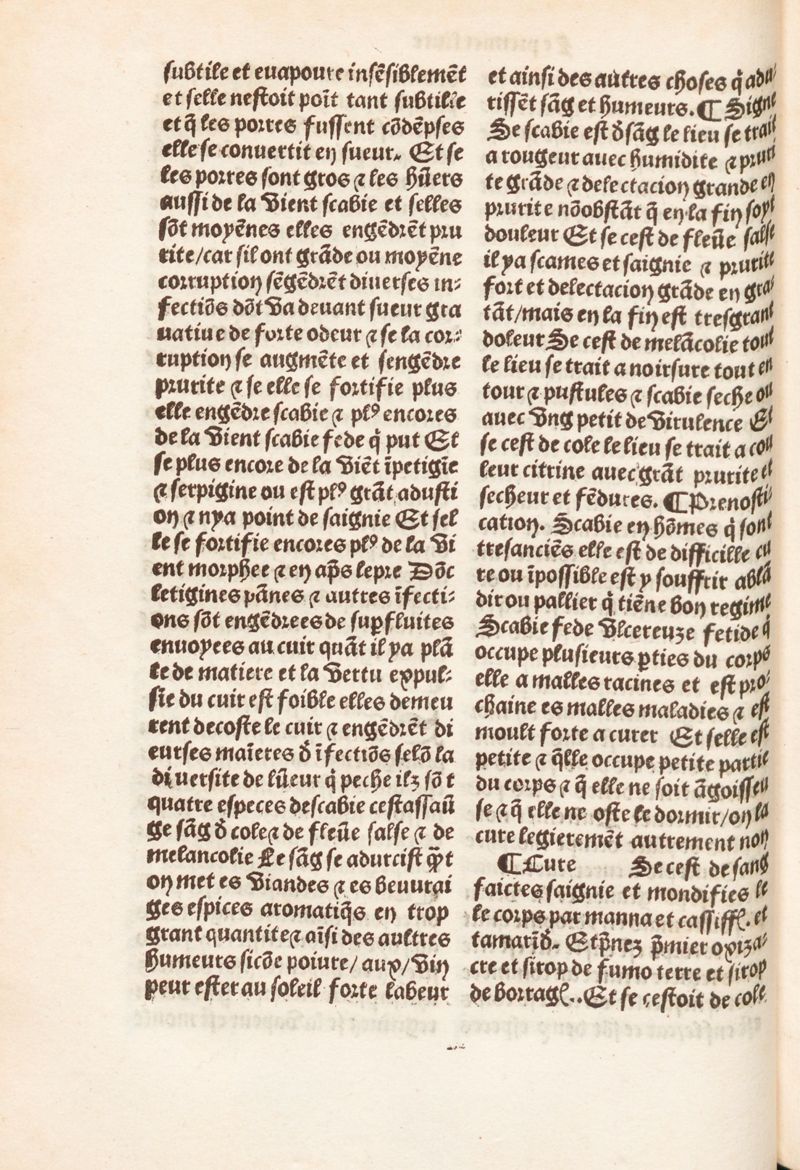 subtile et euapoure insẽsiblemẽt
et selle nestoit poĩt tant subtille
et q̃ les porres fussent cõdẽpses
elle se conuertit en sueur. Et se
les porres sont gros ⁊ les hũers
aussi de la vient scabie et selles
sõt moyẽnes elles engẽdrẽt pru
rite/car sil ont grãde ou moyẽne
corruption sẽgẽdrẽt diuerses in⸗
fectiõs dõt va deuant sueur gra
uatiue de forte odeur ⁊ se la cor⸗
ruption se augmẽte et sengẽdre
prurite ⁊ se elle se fortifie plus
elle engẽdre scabie ⁊ plꝰ encores
de la vient scabie fede q̃ put Et
se plus encore de la viẽt ĩpetigĩe
⁊ serpigine ou est plꝰ grãt adusti
on ⁊ nya point de saignie Et sel
le se fortifie encores plꝰ de la vi
ent morphee ⁊ en ap̃s lepre Dõc
letigines pãnes ⁊ autres ĩfecti⸗
ons sõt engẽdrees de sup̃fluites
enuoyees au cuir quãt il ya plã
te de matiere et la vertu expul⸗
sie du cuir est foible elles demeu
rent decoste le cuir ⁊ engẽdrẽt di
eurses maĩeres d̃ ĩfectiõs selõ la
diuersite de lũeur q̃ peche ilz sõt
quatre especes descabie cestassaũ
ge sãg d̃ cole ⁊ de fleũe salse ⁊ de
melancolie Le sãg se adurcist q̃t
on met es viandes ⁊ es beuurai
ges espices aromatiq̃s en trop
grant quantite ⁊ aĩsi des aultres
humeurs sicõe poiure/ aux/ vin
peur ester au soleil forte labeur
et ainsi des aũtres choses q̃ adu
rissẽt sãg et humeurs. ¶ Signe
Se scabie est d̃ sãg le lieu se trait
a rougeur auec humidite ⁊ pruri
te grãde ⁊ delectacion grande en
prurite nõobstãt q̃ en la fin soyt
douleur Et se cest de fleũe salse
il ya scames et saignie ⁊ prurite
fort et delectacion grãde en gra⸗
tãt/mais en la fin est tresgrant
doleur Se cest de melãcolie tout
le lieu se trait a noirsure tout en
tour ⁊ pustules ⁊ scabie seche ou
auec vng petit de virulence Et
se cest de cole le lieu se trait a cou
leur citrine auec grãt prurite et
secheur et fẽdures. ¶ Prenosti⸗
cation. Scabie en hõmes q̃ sont
tresanciẽs elle est de difficille cu
re ou ĩpossible est y souffrir ablã
dir ou pallier q̃ tiẽne bon regime
Scabie fede vlcereuze fetide q̃
occupe plusieurs p̃ties du corps
elle a malles racines et est pro⸗
chaine es malles maladies ⁊ est
moult forte a curer Et selle est
petite ⁊ q̃lle occupe petite partie
du corps ⁊ q̃ elle ne soit ãgoisseu
se ⁊ q̃ elle ne oste le dormir/on la
cure legieremẽt autrement non
¶ Cure Se cest de sang
faictes saignie et mondifies le
le corps par manna et cassiffl. et
tamarĩd̃. Et p̃nez p̃mier oxiza⸗
cre et sirop de fumo terre et sirop
de borragl.. Et se cestoit de cole